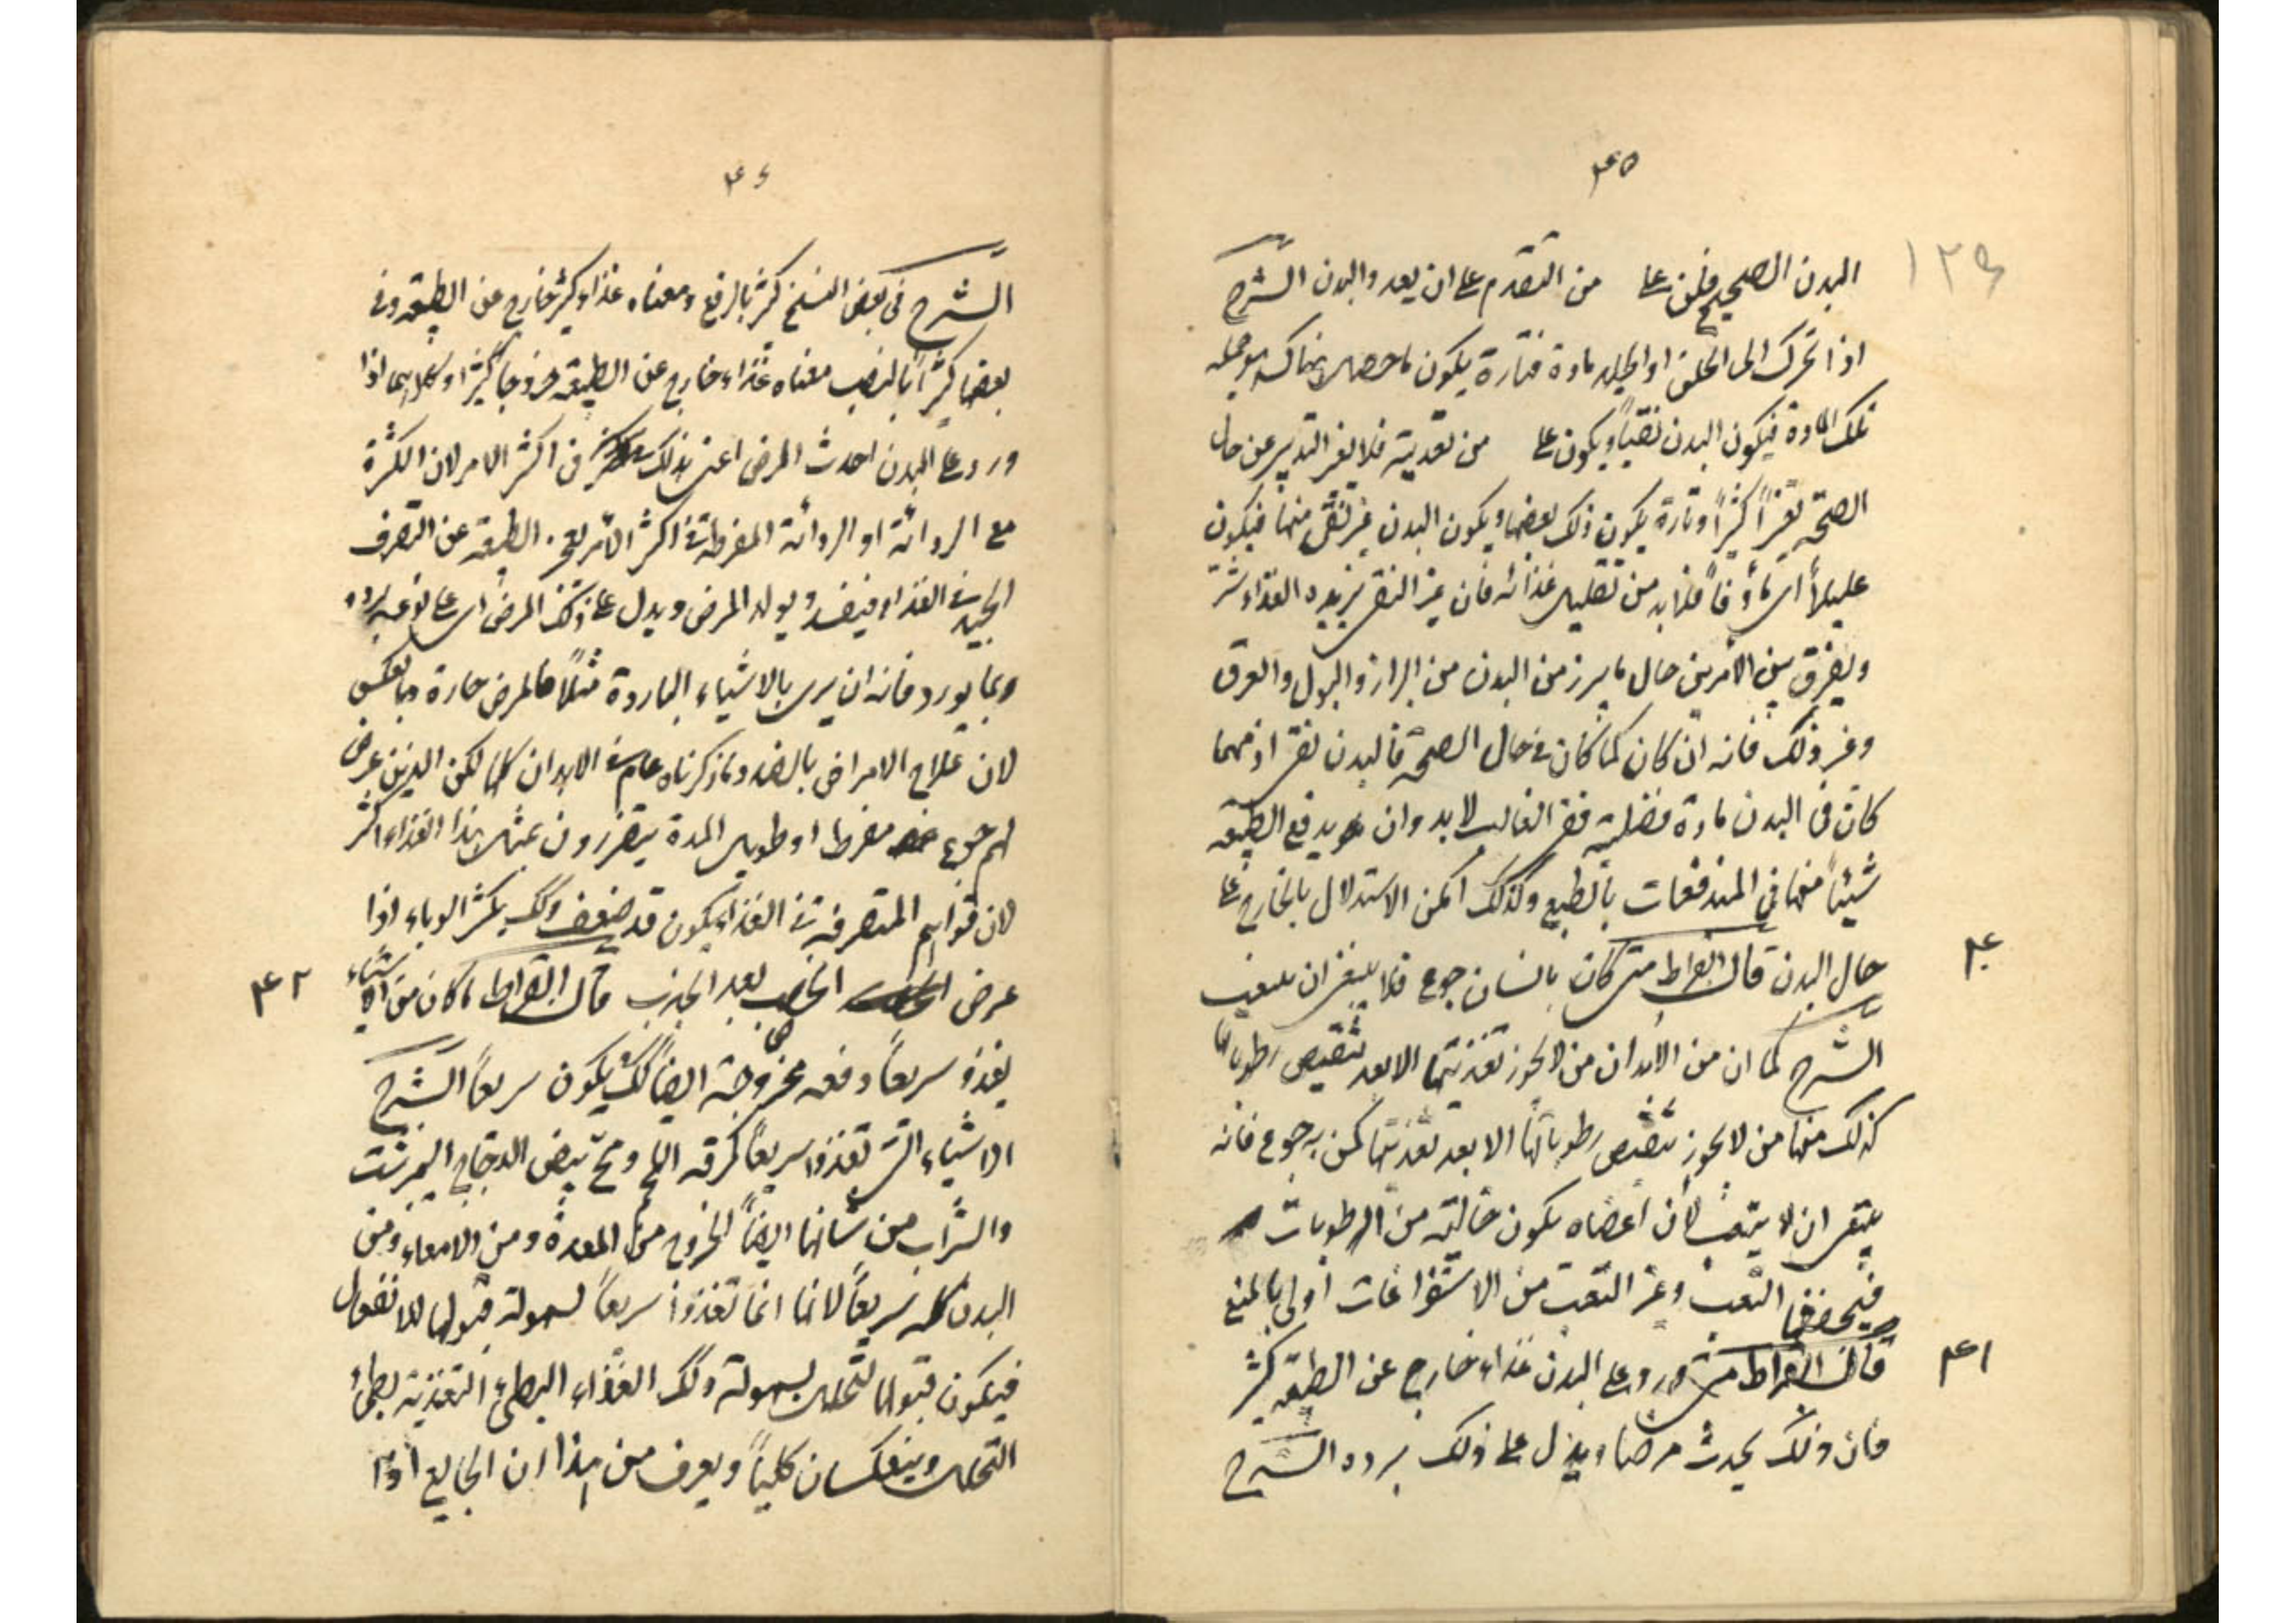 ٣٥
١٢٩
البدن الصحيح فلتن على من التقدم على ان يعد والبدن الشرح
اذا تحرك الى الحلق او الجلد مادة فتارة يكون ما حصل هناك هو جملة
تلك المادة فيكون البدن نقياً ويكون على من تعديته فلا يغير التدبير عن حال
الصحة تغيراً كثيراً وتارة يكون ذلك بعضها ويكون البدن غير نقى منها فيكون
عليلاً اى مأوفاً فلا بد من تقليل غذائه فان غير النقى يزيده الغذاء شراً
ويفرق بين الامرين حال ما يبرز من البدن من البراز والبول والعرق
وغير ذلك فانه ان كان كما كان فى حال الصحة فالبدن نقى اذ مهما
كان فى البدن مادة فضلية ففى الغالب لا بد وان يدفع الطبيعة
شيئاً منها فى المندفعات بالطبع ولذلك امكن الاستدلال بالخارج على
حال البدن قال ابقراط متى كان بانسان جوع فلا ينبغى ان يتعب
٤٠
الشرح كما ان من الابدان من لا يجوز تغذيتها الا بعد تنقيص رطوباتها
كذلك منها من لا يجوز تنقيص رطوباتها الا بعد تغذيتها كمن به جوع فانه
ينبغى ان لا يتعب لان اعضاه يكون خالية من الرطوبات
فيجففها التعب وغير التعب من الاستفراغات اولى بالمنع
قال ابقراط متى ورد على البدن غذاء خارج عن الطبيعة كثير
٤١
فان ذلك يحدث مرضا ويدل على ذلك برده الشرح
٣٦
الشرح فى بعض النسخ كثير بالرفع ومعناه غذاء كثير خارج عن الطبيعة وفى
بعضها كثيراً بالنصب معناه غذاء خارج عن الطبيعة خروجاً كثيرا وكلاهما اذا
ورد على البدن احدث المرض اعنى بذلك فى اكثر الامر لان الكثرة
مع الردائة او الردائة المفرطة فى اكثر الامر يعجز الطبيعة عن التصرف
الجيد فى الغذاء فيفسد ويولد المرض ويدل على ذلك المرض اى على نوعه برده
وبما يورد فانه ان برى بالاشياء الباردة مثلاً فالمرض حارة وبالعكس
لان علاج الامراض بالضد وما ذكرناه عام فى الابدان كلها لكن الذين عرض
لهم جوع مفرط او طويل المدة يتضررون بمثل هذا الغذاء اكثر
لان قواهم المتصرفة فى الغذاء يكون قد ضعف ولذلك يكثر الوباء اذا
عرض الخصب بعد الجدب قال ابقراط ما كان من الاشياء
٤٢
يغذو سريعاً دفعة فخروجه ايضاً كذلك يكون سريعاً الشرح
الاشياء التى تغذوا سريعاً كمرقة اللحم ومح بيض الدجاج النيمرشت
والشراب من شأنها ايضاً الخروج من المعدة ومن الامعاء ومن
البدن كله سريعاً لانها انما تغذوا سريعاً لسهولة قبولها للانفعال
فيكون قبولها للتحلل بسهولة ولذلك الغذاء البطئ التغذية بطئ
التحلل وينعكسان كلياً ويعرف من هذا ان الجايع اذا